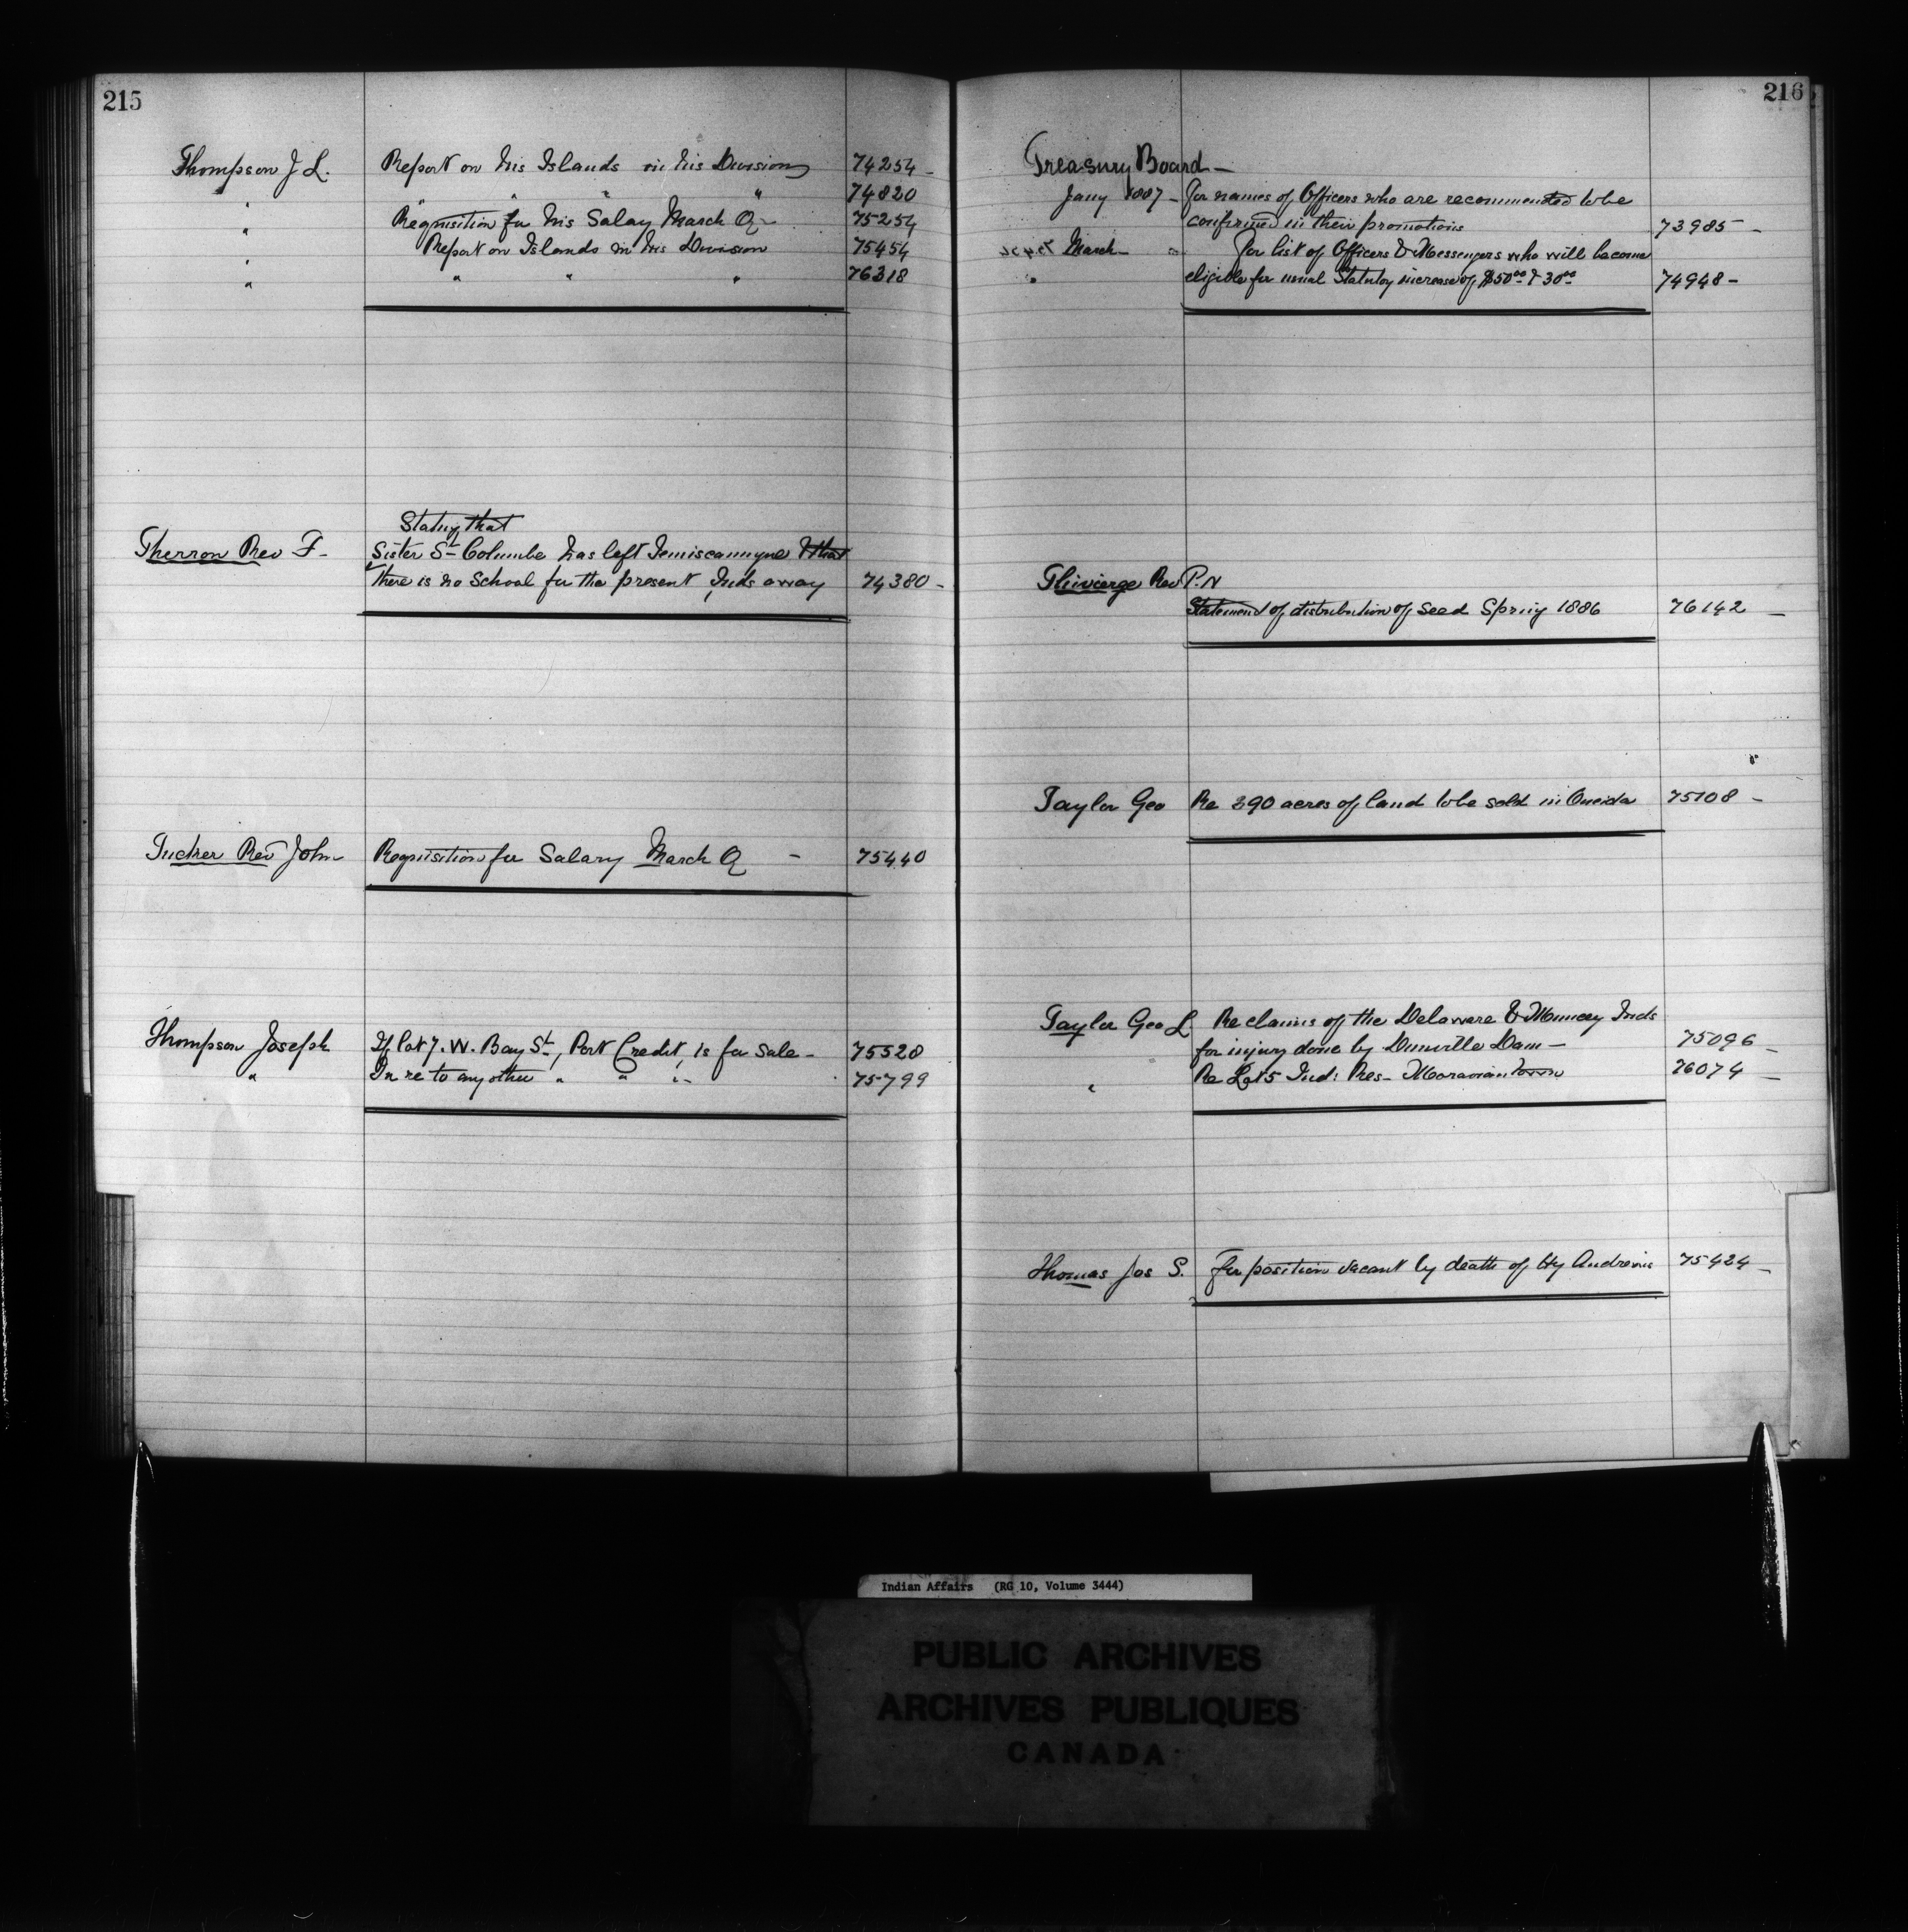 215
Thompson J L. Report on his Islands in his Division 74254 -
" " " " 74820
" Requisition for his Salary March Q - 75254
" Report on Islands in his Division 75454
" " " " 76318
Stating that
Therron Rev F - Sister St Columbe has left Temiscamyne & that
there is no School for the present, Inds away 74380 -
Tucker Rev John Requisition for Salary March Q - 75440
Thompson Joseph If lot 7. W. Bay St, Port Credit, is for Sale - 75528
" In re to any other " " " 75799
216
Treasury Board -
Jany 1887 - For names of Officers who are recommended to be
confirmed in their promotions 73985 -
March - For list of Officers & Messengers who will become
" eligible for usual Statutory increase of $50 00 & 30 00 74948 -
Thivierge Rev P. N
Statement of distribution of seed Spring 1886 76142 -
Taylor Geo Re 390 acres of land to be sold in Oneida 75108 -
Taylor Geo L Re claims of the Delaware & Muncey Inds
for injury done by Dunville Dam - 75096 -
" Re Lot 5 Ind: Res - Moravian Town 76074 -
Thomas Jos S. For position vacant by death of Hy Andrews 75424 -
Indian Affairs (RG 10, Volume 3444)
PUBLIC ARCHIVES
ARCHIVES PUBLIQUES
CANADA